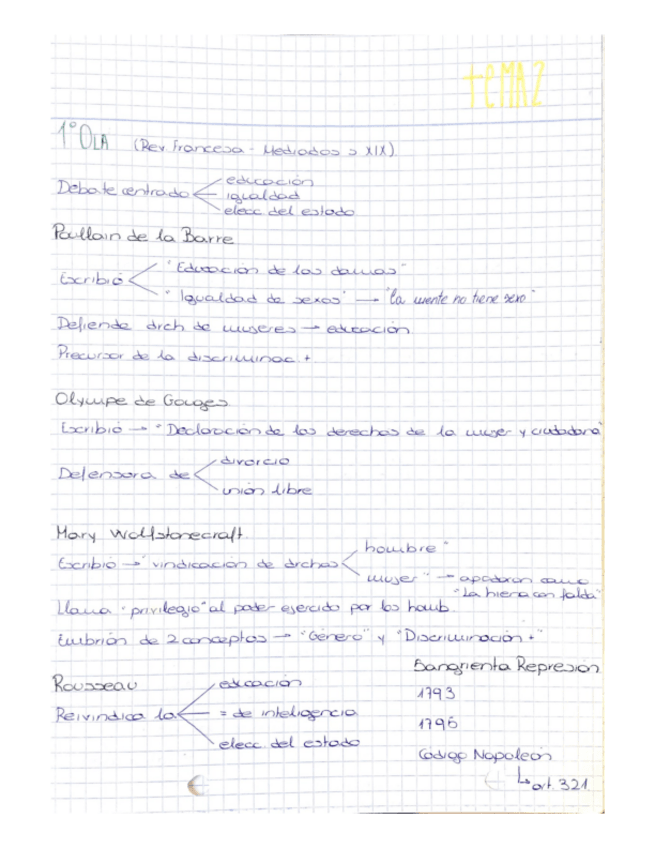 tEMA2
1º OLA (Rev Francesa - Mediados s XIX)
educación
Debate centrado igualdad
elecc del estado
Poullain de la Barre
"Educación de las damas"
Escribió
"Igualdad de sexos" → "la mente no tiene sexo"
Defiende drch de mujeres → educación
Precursor de la discriminac +
Olympe de Gouges
Escribió → "Declaración de los derechos de la mujer y ciudadana"
divorcio
Defensora de
unión libre
Mary Wollstonecraft.
hombre"
Escribió → "vindicación de drchos
mujer" → apodaron como
"La hiena con falda"
Llama "privilegio" al poder ejercido por los homb.
Embrión de 2 conceptos → "Género" y "Discriminación +"
Sangrienta Represión
Rousseau educación
1793
Reivindica la = de inteligencia
1795
elecc. del estado
Código Napoleón
↳ art. 321.